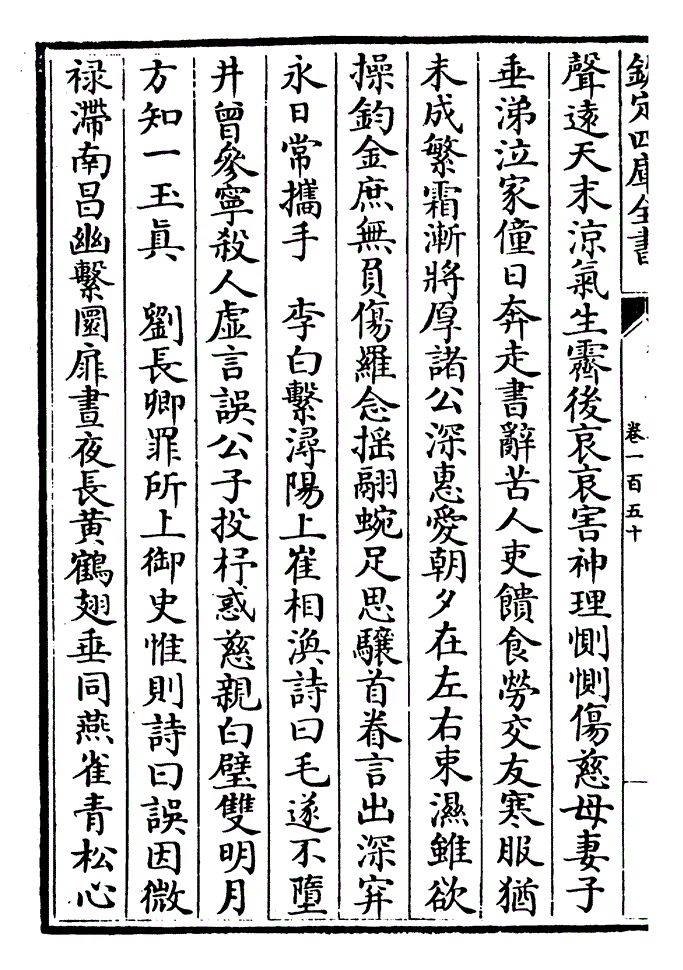 欽定四庫全書
卷一百五十
聲遠天末涼氣生霽後哀哀害神理惻惻傷慈母妻子
垂涕泣家僮日奔走書辭苦人吏饋食勞交友寒服猶
未成繁霜漸將厚諸公深惠愛朝夕在左右束濕雖欲
操鈞金庶無負傷羅念揺翮蜿足思驤首眷言出深穽
永日常攜手　李白繫潯陽上崔相渙詩曰毛遂不墮
井曾參寧殺人虛言誤公子投杼惑慈親白璧雙明月
方知一玉眞　劉長卿罪所上御史惟則詩曰誤因微
禄滯南昌幽繫圜扉晝夜長黄鶴翅垂同燕雀青松心